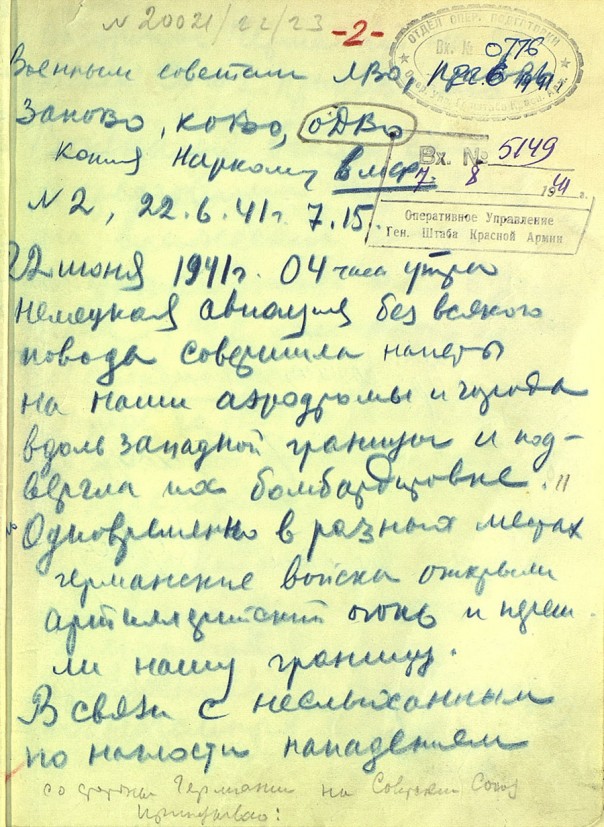 N 20021/22/23
-2-
ОТДЕЛ ОПЕР. ПОДГОТОВКИ
Вх. № 0776
Военным советам ЛВО, ПрибОВО
ЗапОВО, КОВО, ОДВО
Вх. № 5149
копия Наркому В.М.Ф.
7. 8 1941 г.
N 2, 22.6.41г. 7.15.
Оперативное Управление
Ген. Штаба Красной Армии
22 июня 1941г. 04 часа утра
немецкая авиация без всякого
повода совершила налеты
на наши аэродромы и города
вдоль западной границы и под-
вергла их бомбардировке.
Одновременно в разных местах
германские войска открыли
артиллерийский огонь и переш
ли нашу границу.
В связи с неслыханным
по наглости нападением
со стороны Германии на Советский Союз
Приказываю: